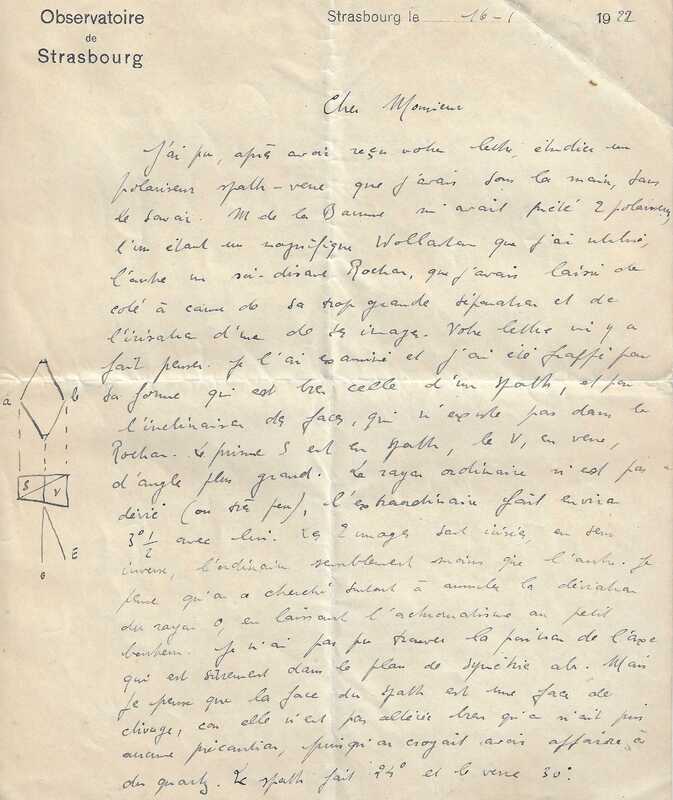 Observatoire
de
Strasbourg
Strasbourg le 16-1 1922
Cher Monsieur
J'ai pu, après avoir reçu votre lettre, étudier un
polariseur spath-verre que j'avais sous la main, sans
le savoir. M de la Baume m'avait prêté 2 polariseurs,
l'un étant un magnifique Wollaston que j'ai utilisé,
l'autre un soi-disant Rochon, que j'avais laissé de
coté à cause de sa trop grande séparation et de
l'irisation d'une de ses images. Votre lettre m'y a
fait penser. Je l'ai examiné et j'ai été frappé par
sa forme qui est bien celle d'un spath, et par
l'inclinaison des faces, qui n'existe pas dans le
Rochon. Le prisme S est en spath, le V, en verre,
d'angle plus grand. Le rayon ordinaire n'est pas
dévié (ou très peu), l'extraordinaire fait environ
3°1/2 avec lui. Les 2 images sont irisées, en sens
inverse, l'ordinaire sensiblement moins que l'autre. Je
pense qu'on a cherché surtout à annuler la déviation
du rayon O, en laissant l'achromatisme au petit
bonheur. Je n'ai pas pu trouver la position de l'axe
qui est sûrement dans le plan de symétrie ab. Mais
je pense que la face du spath est une face de
clivage, car elle n'est pas altérée bien qu'on n'ait pris
aucune précaution, puisqu'on croyait avoir affaire à
du quartz. Le spath fait 24° et le verre 30°.
a b
S V
o E